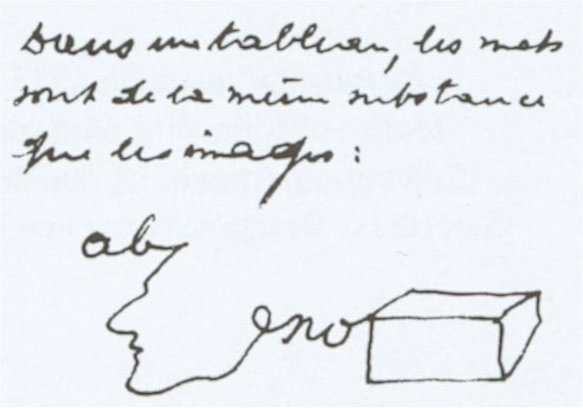 Dans un tableau, les mots
sont de la même substance
que les images :
ab
eno